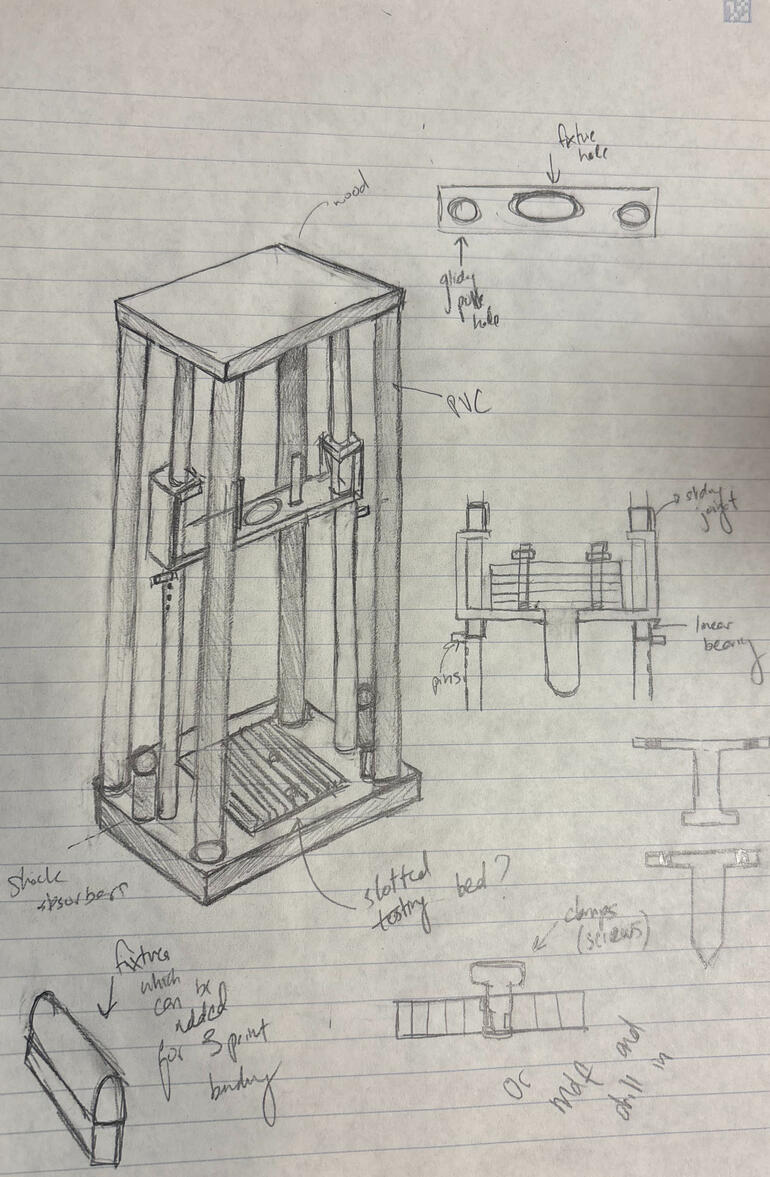 fixture
hole
wood
hole
PVC
sliding
joint
linear
bearing
pins
Shock
absorbers
slotted
testing bed?
clamps
(screws)
fixture
which
can be
added
for 3 point
bending
Or
mdf and
drill in